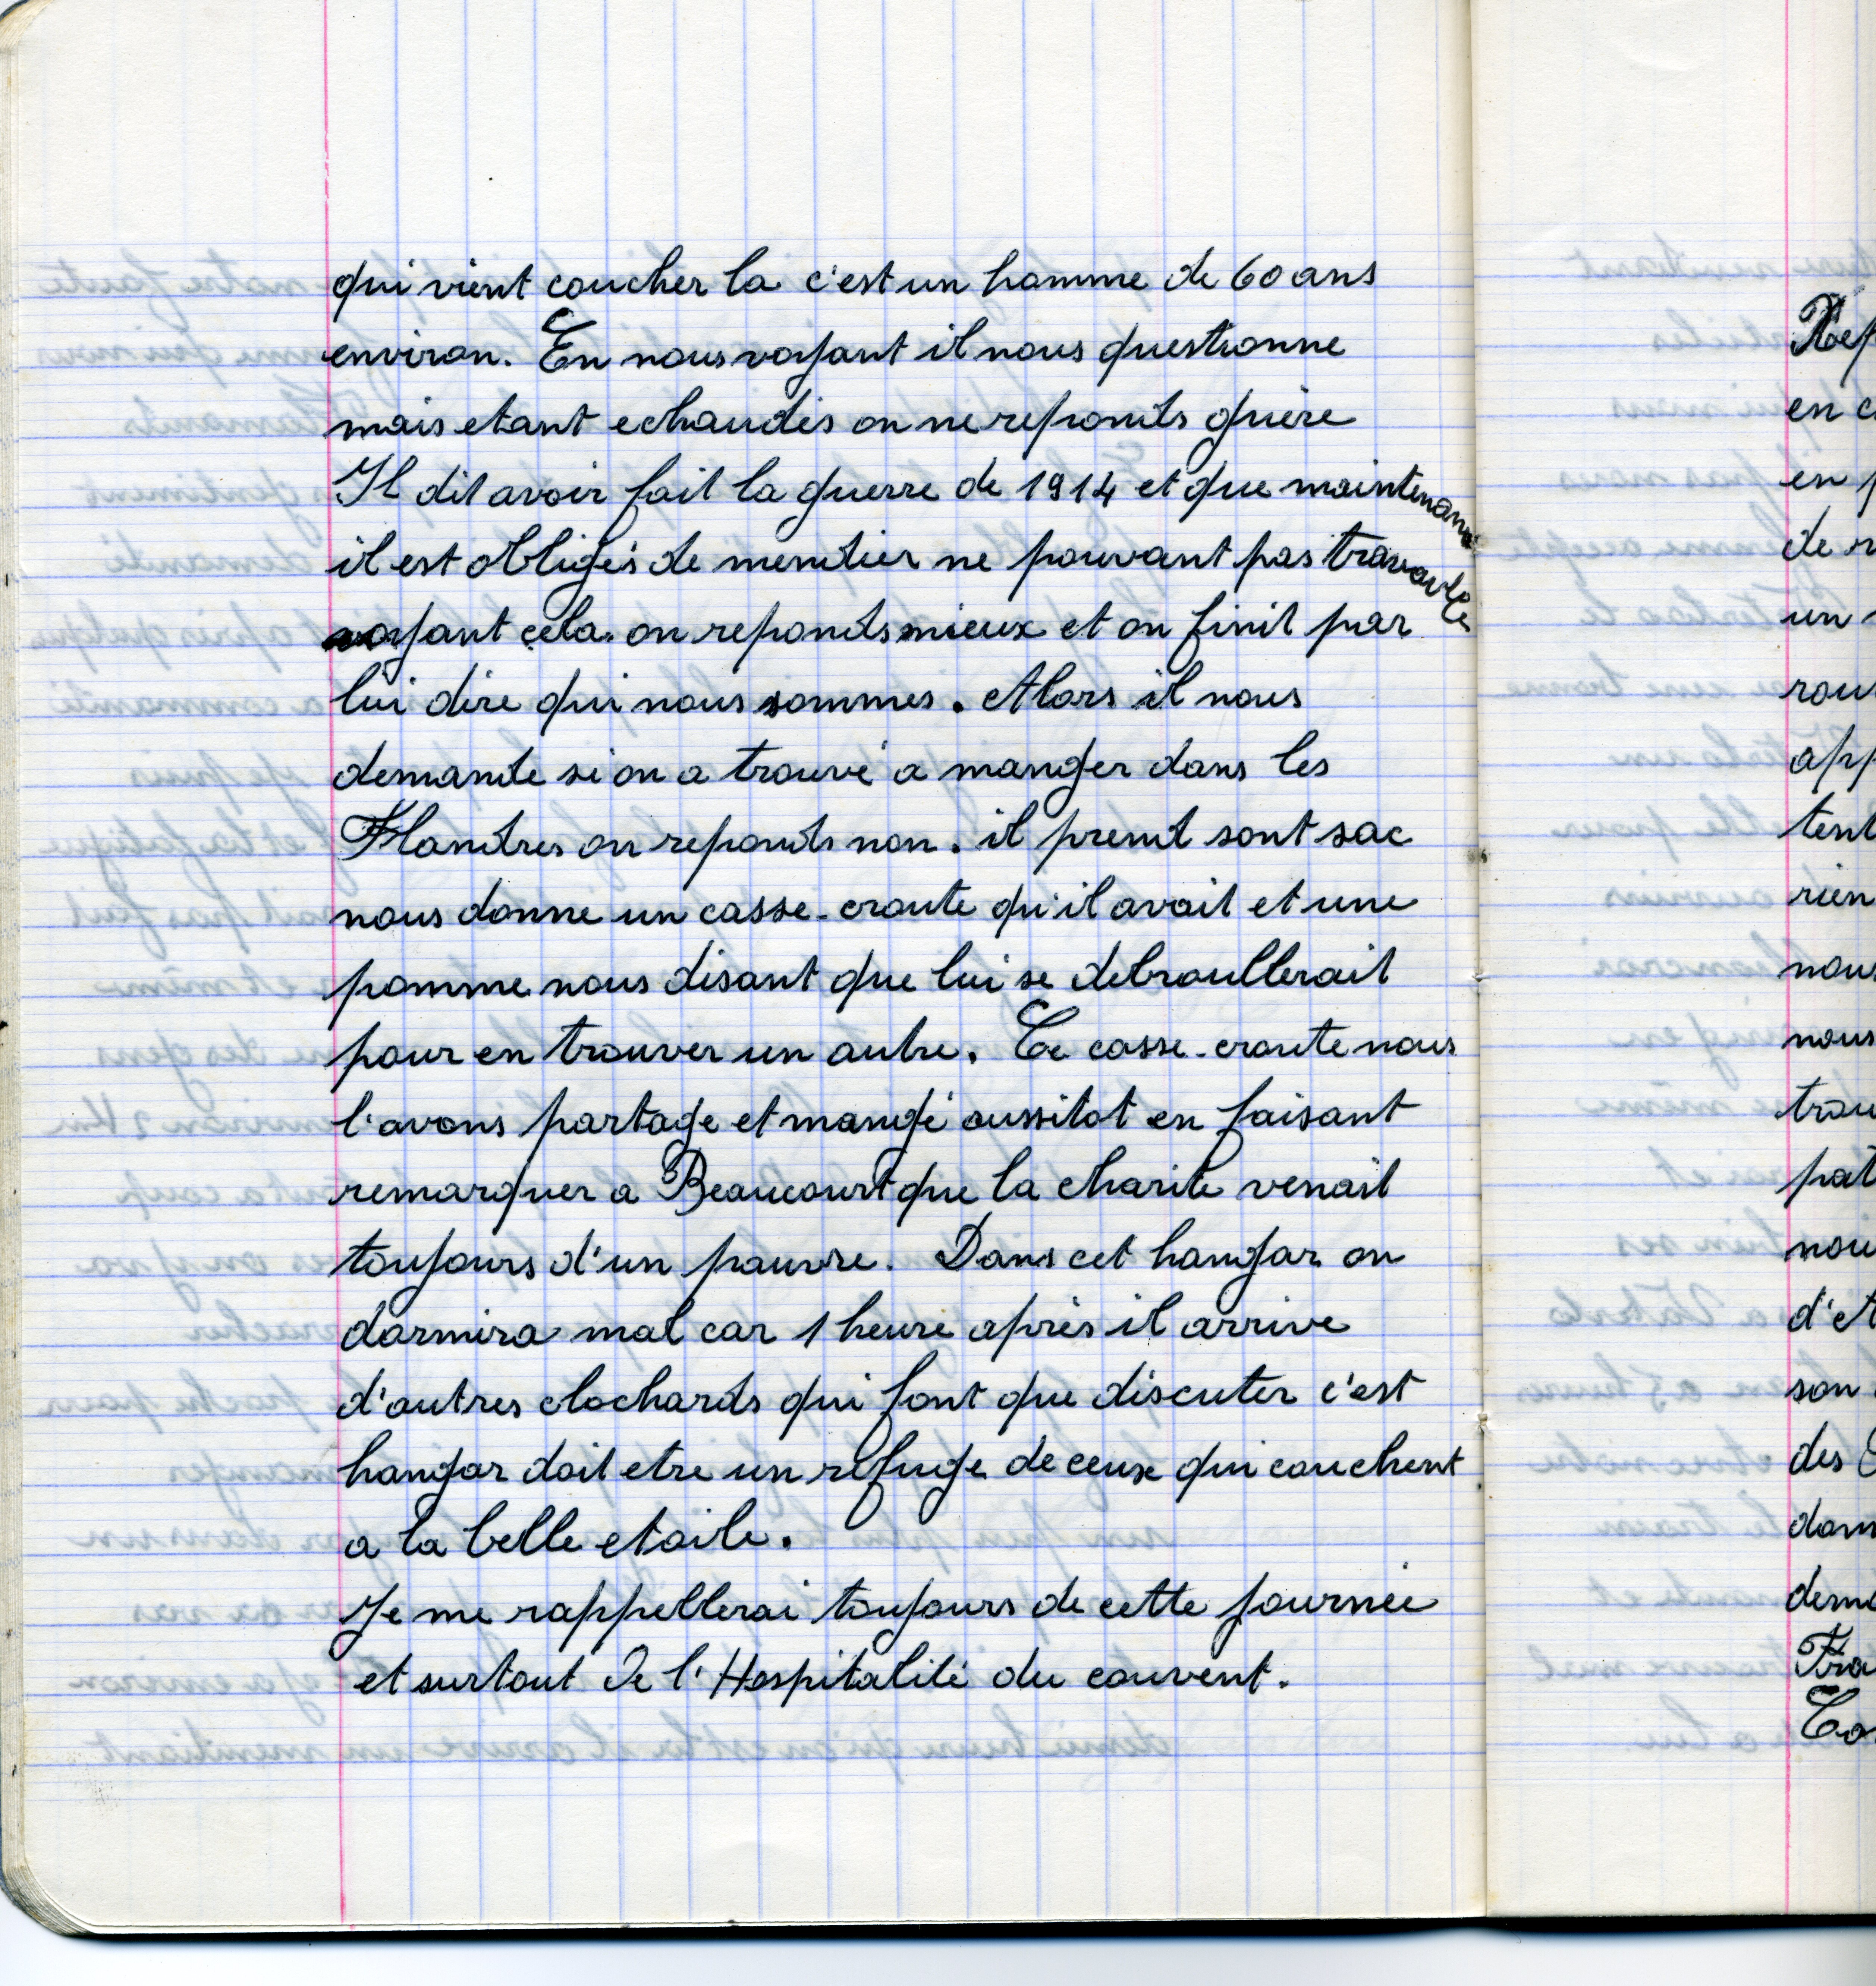 qui vient coucher la c'est un homme de 60 ans
environ. En nous voyant il nous questionne
mais etant echaudés on ne reponds guère
Il dit avoir fait la guerre de 1914 et que maintenant
il est obligés de mendier ne pouvant pas travailler
voyant cela on reponds mieux et on finit par
lui dire qui nous sommes. Alors il nous
demande si on a trouvé a manger dans les
Flandres on reponds non. il prend sont sac
nous donne un casse-croute qu'il avait et une
pomme nous disant que lui se debroullerait
pour en trouver un autre. Ce casse-croute nous
l'avons partage et mangé aussitot en faisant
remarquer a Beaucourt que la charite venait
toujours d'un pauvre. Dans cet hangar on
dormira mal car 1 heure après il arrive
d'autres clochards qui font que discuter c'est
hangar doit etre un refuge de ceux qui couchent
a la belle etoile.
Je me rappellerai toujours de cette journée
et surtout de l'Hospitalité du couvent.
en
de
un
rien
nous
nous
d'
son
des